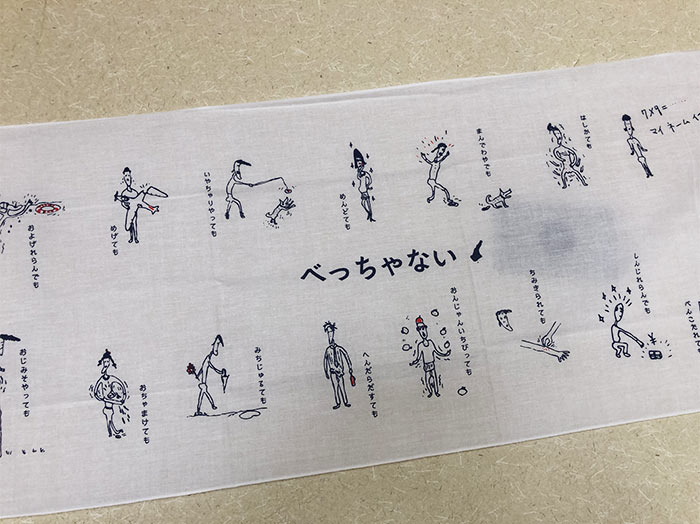 およげれらんでも
めげても
いやちゃりやっても
めんどても
まんでわやでも
はしかても
7×9=……
マイ ネーム イ
べっちゃない
おじみそやっても
おちゃまけても
みちじゅるても
へんだらだすても
おんじゃんいちびっても
ちみきられても
しんじれらんでも
べんこたれて